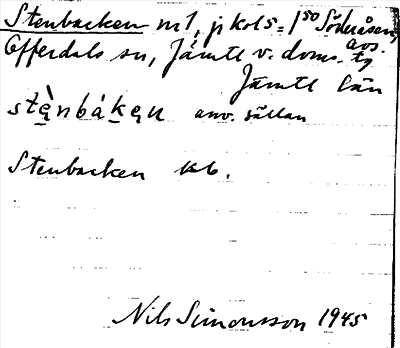 Stenbacken nr 1, jr kols = 1 50 Söderåsen,
Offerdals sn, Jämtl v. doms. tg
avs.
Jämtl län
stẹ̀nbákẹn anv. sällan
Stenbacken kb.
Nils Simonsson 1945